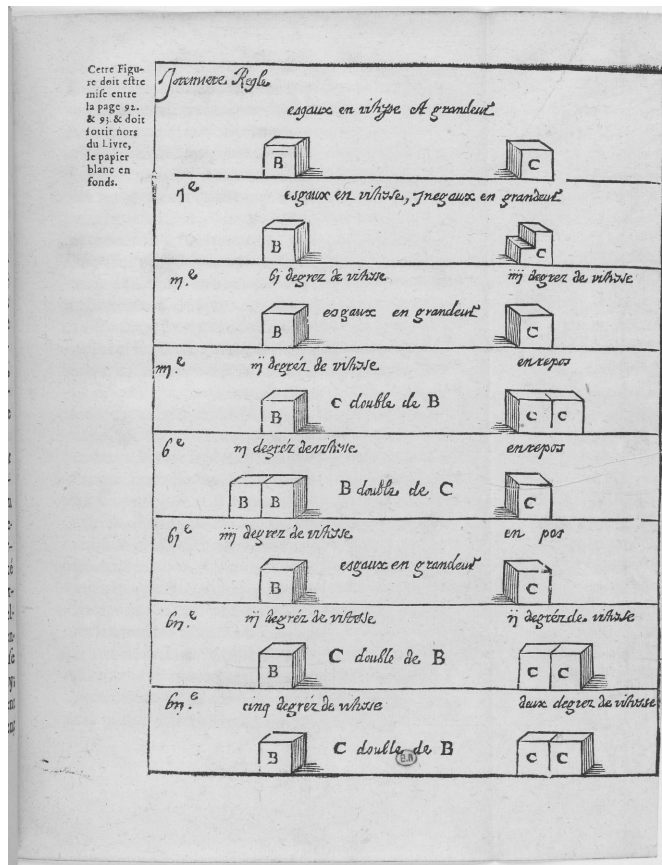 Cette Figu-
re doit estre
mise entre
la page 92.
& 93. & doit
sortir hors
du Livre,
le papier
blanc en
fonds.
Regle
esgaux en vitesse et grandeur
B C
esgaux en vitesse, Jnegaux en grandeur
B C
degrez de vitesse degrez de vitesse
esgaux en grandeur
B C
degréz de vitesse en repos
C double de B
B C C
6e degréz de vitesse en repos
B double de C
B B C
degrez de vitesse en pos
esgaux en grandeur
B C
degréz de vitesse degréz de vitesse
C double de B
B C C
cinq degréz de vitesse deux degrez de vitesse
C double de B
B C C
B.N